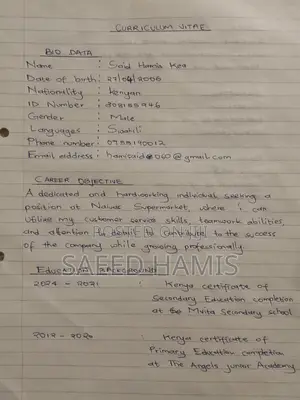 CURRICULUM VITAE
BIO DATA
Name : Said Hamis Kea
Date of birth: 27/04/2006
Nationality : Kenyan
ID Number :
Gender : Male
Languages : Swahili
Phone number:
Email address :
CAREER OBJECTIVE
A dedicated and hardworking individual seeking a
position at Naivas Supermarket, where I can
utilise my customer service skills, teamwork abilities,
and attention to detail to contribute to the success
of the company while growing professionally.
SAEED HAMIS
EDUCATION BACKGROUND
2024 - 2021 Kenya certificate of
Secondary Education completion
at the Mvita Secondary school
2012 - 2020 Kenya certificate of
Primary Education completion
at The Angels Junior Academy